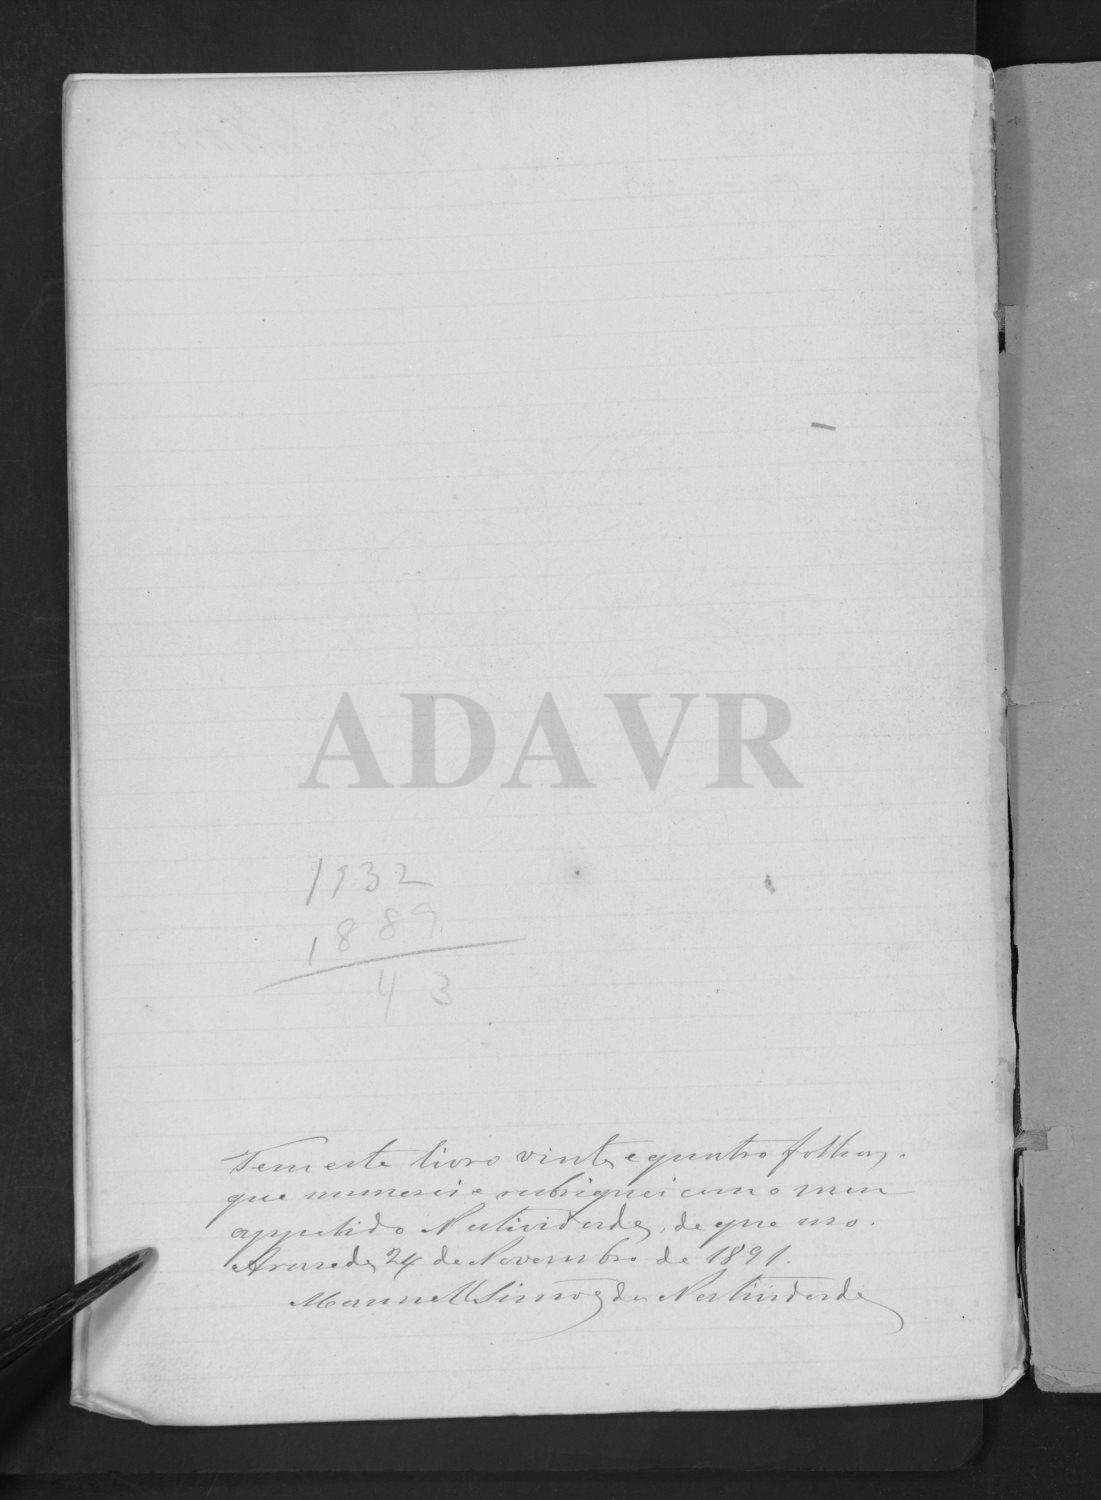 ADAVR
1932
1889
43
Tem este livro vinte e quatro folhas,
que numerei e rubriquei com o meu
appelido Natividade, de que uso.
Arazede, 24 de Novembro de 1891.
Manuel Simões da Natividade